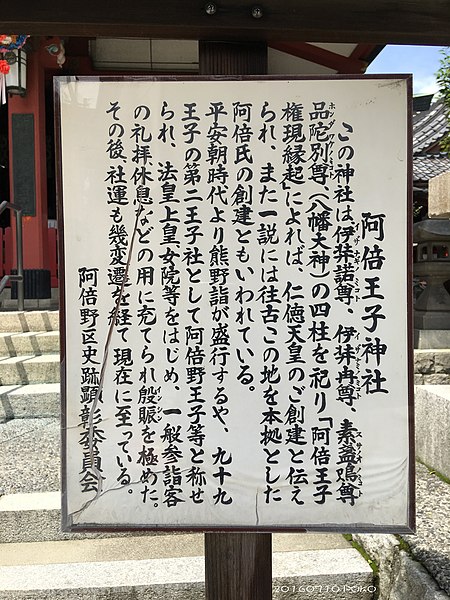 阿倍王子神社
この神社は伊弉諾尊、伊弉冉尊、素盞嗚尊
イザナギノミコト
イザナミノミコト
スサノオノミコト
品陀別尊、(八幡大神)の四柱を祀り「阿倍王子
ホンダワケノミコト
権現縁起」によれば、仁徳天皇のご創建と伝え
られ、また一説には往古この地を本拠とした
阿倍氏の創建ともいわれている。
平安朝時代より熊野詣が盛行するや、九十九
王子の第二王子社として阿倍野王子等と称せ
られ、法皇上皇女院等をはじめ、一般参詣客
の礼拝休息などの用に充てられ殷賑を極めた。
インシン
その後、社運も幾変遷を経て現在に至っている。
阿倍野区史跡顕彰委員会